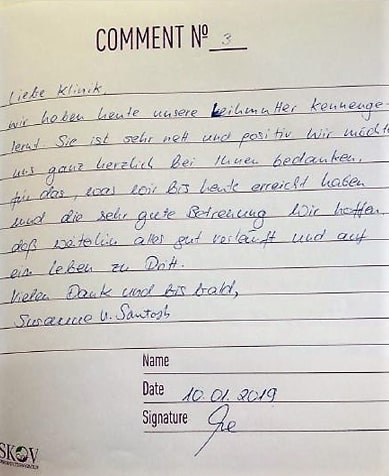 COMMENT Nº 3
Liebe Klinik,
wir haben heute unsere Leihmutter kennenge-
lernt. Sie ist sehr nett und positiv. Wir möcht
uns ganz herzlich bei Ihnen bedanken,
für das, was wir bis heute erreicht haben
und die sehr gute Betreuung. Wir hoffen,
daß weiterhin alles gut verläuft und auf
ein Leben zu Dritt.
Vielen Dank und bis bald,
Susanne u. Santosh
Name
Date 10.01.2019
Signature
SKOV